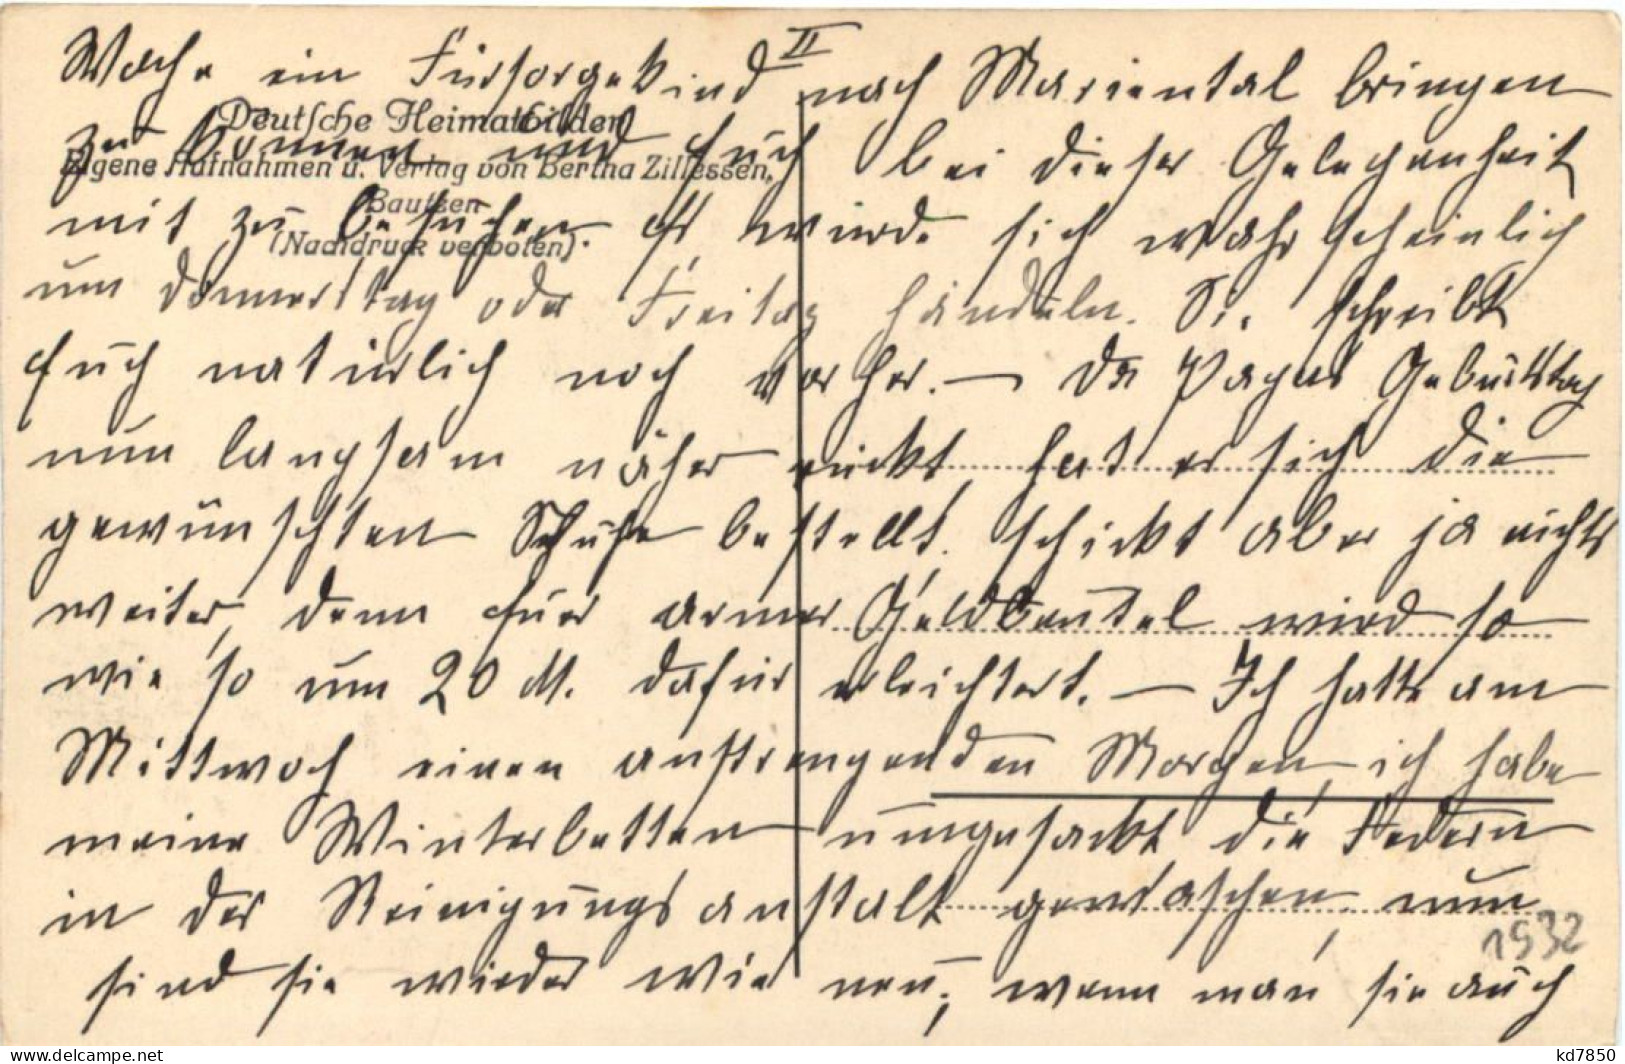 II
Woche ein Fürsorgekind nach Mariental bringen
Deutsche Heimatbilder
zu können und Euch bei dieser Gelegenheit
Eigene Aufnahmen u. Verlag von Bertha Zillessen,
Bautzen
mit zu besuchen. Es würde sich wahrscheinlich
(Nachdruck verboten).
um Donnerstag oder Freitag handeln. Sie schreibt
Euch natürlich noch vorher. — Da Papas Geburtstag
nun langsam näher rückt, hat er sich die
gewünschten Schuhe bestellt, schickt aber ja nichts
weiter, denn Euer armer Geldbeutel wird so
wie so um 20 M. dafür erleichtert. — Ich hatte am
Mittwoch einen anstrengenden Morgen, ich habe
meine Winterbetten umgesackt, die Federn
in der Reinigungsanstalt gewaschen, nun
1932
sind sie wieder wie neu; wenn man sie auch
kd7850